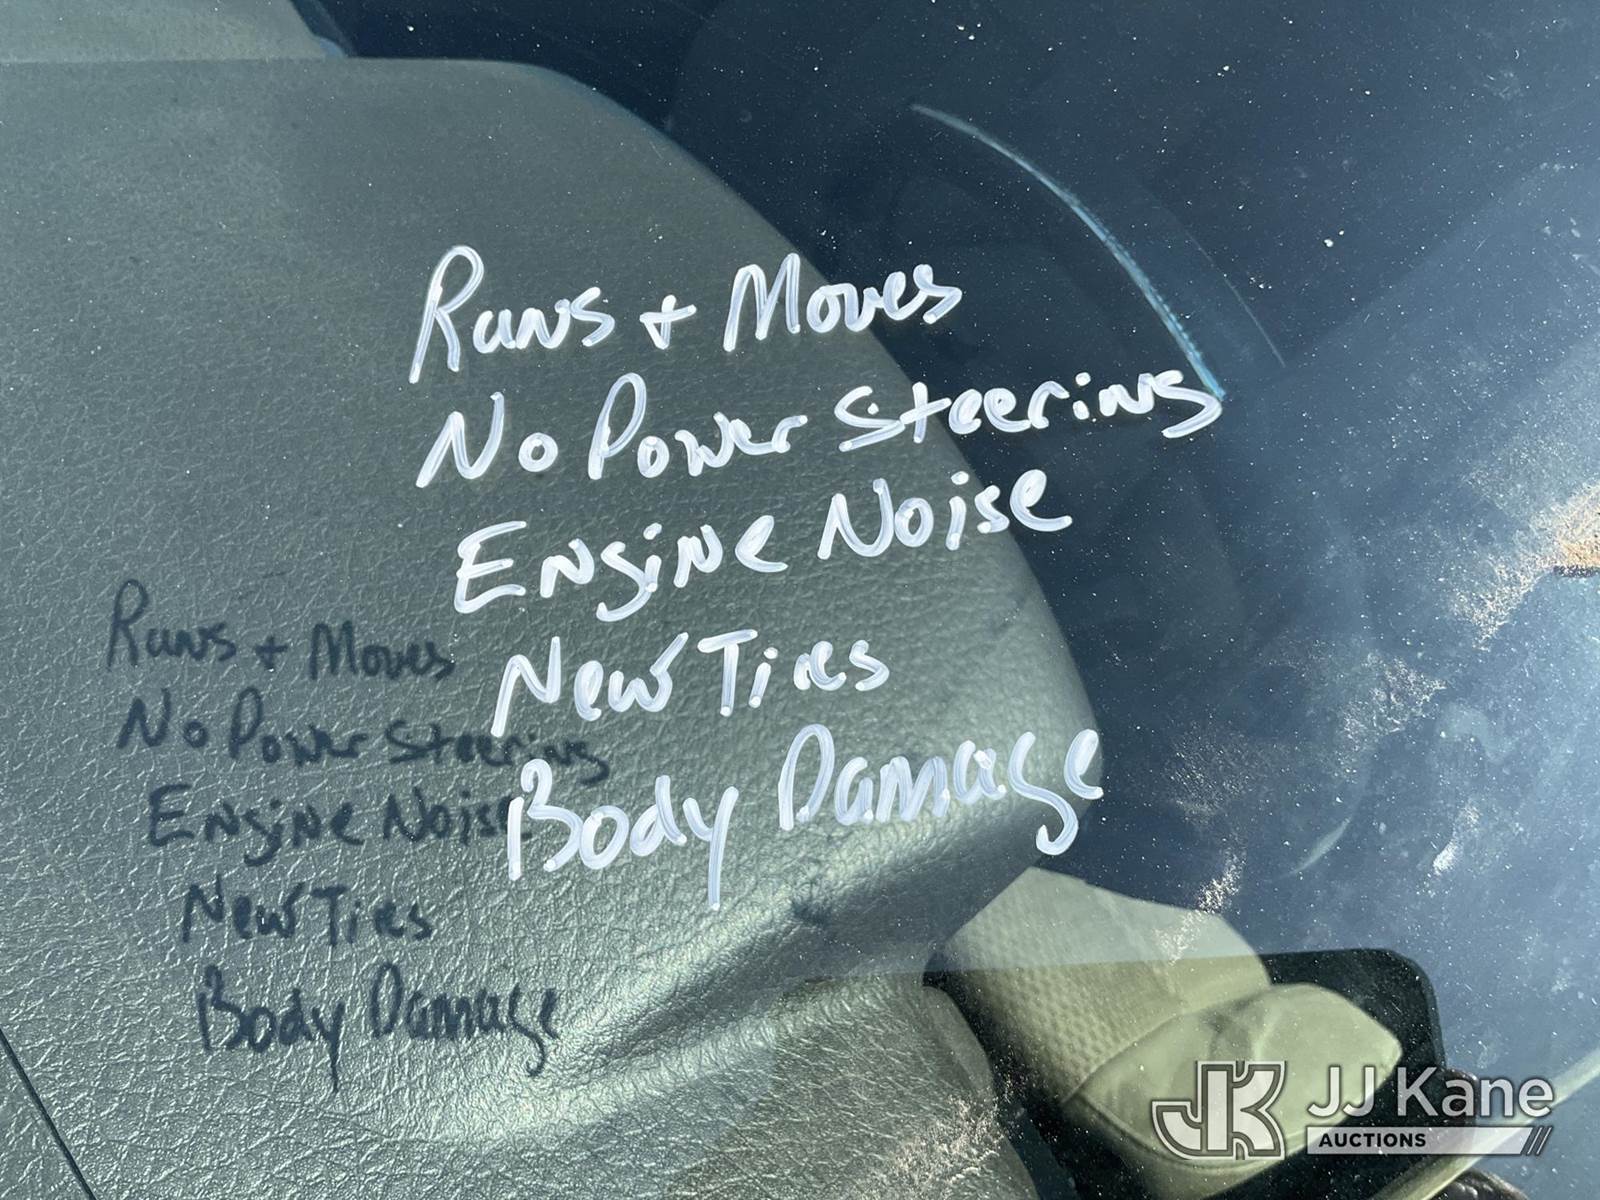 Runs + Moves
No Power Steering
Engine Noise
New Tires
Body Damage
Runs + Moves
No Power Steering
Engine Noise
New Tires
Body Damage
JK JJ Kane
AUCTIONS